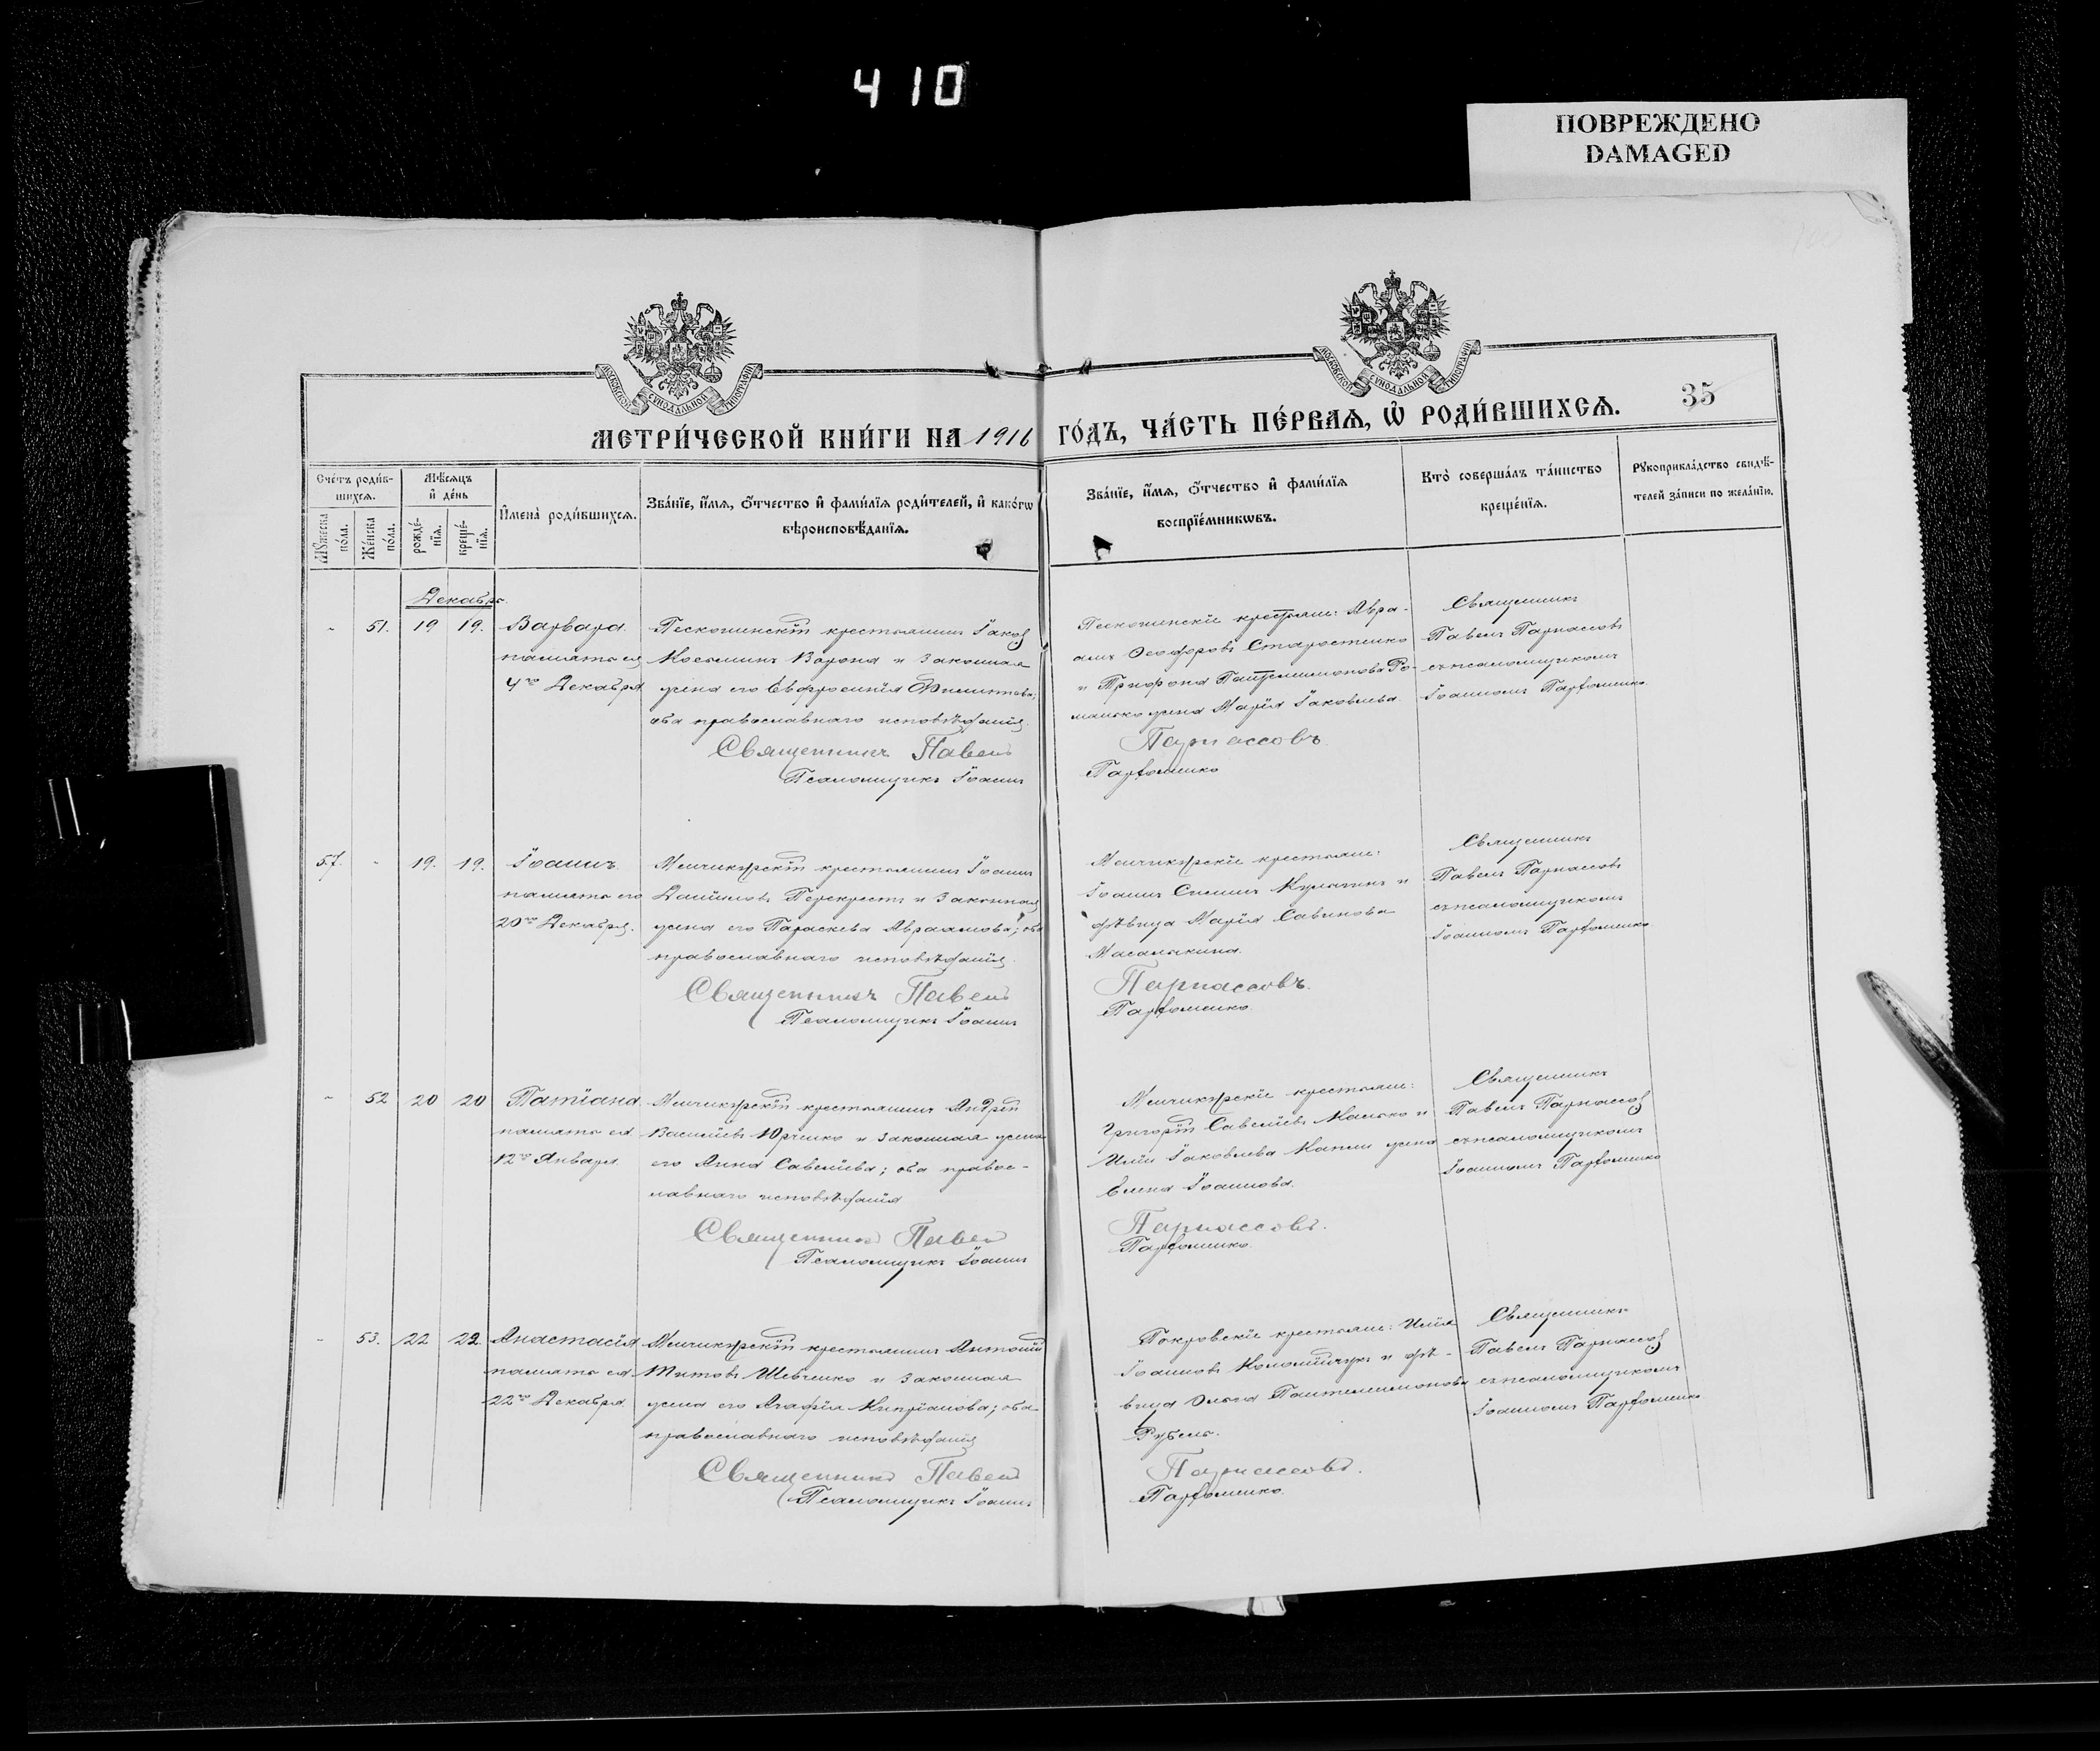 410
ПОВРЕЖДЕНО
DAMAGED
МОСКОВСКОЙ СУНОДАЛЬНОЙ ТИПОГРАФІИ
МОСКОВСКОЙ СУНОДАЛЬНОЙ ТИПОГРАФІИ
35
МЕТРИ́ЧЕСКОЙ КНИ́ГИ НА 1916 ГО́ДЪ, ЧА́СТЬ ПЕ́РВАѦ, Ѡ҆ РОДИ́ВШИХСѦ.
Сче́тъ роди́в-
шихсѧ.
Мꙋжеска по́ла.
Же́нска по́ла.
Мѣ́сѧцъ и҆ де́нь
рожде́-нїѧ.
креще́-нїѧ.
И҆мена̀ роди́вшихсѧ.
Зва́нїе, и҆́мѧ, ѻ҆́тчество и҆ фами́лїѧ роди́телей, и҆ како́гѡ
вѣроисповѣ́данїѧ.
Зва́нїе, и҆́мѧ, ѻ҆́тчество и҆ фами́лїѧ
воспрїе́мникѡвъ.
Кто̀ соверша́лъ та́инство
креще́нїѧ.
Рꙋкоприкла́дство свидѣ́-
телей за́писи по жела́нїю.
Декабрь.
- 51. 19 19. Варвара.
память ея
4го Декабря.
крестьянинъ Іаковъ
Косминъ Ворона и законная
жена его Евфросинія
оба православнаго исповѣданія.
Священникъ Павелъ
Псаломщикъ Іоаннъ
крестьяне: Авра-
амъ Ѳеодоровъ Старостенко
и Трифона Пантелимонова Ро-
манько жена Марія Іаковлева.
Парнассовъ
Парфоменко
Священникъ
Павелъ Парнассовъ
съ псаломщикомъ
Іоанномъ Парфоменко.
57. - 19. 19. Іоаннъ.
память его
20го Декабря.
Менчикурскій крестьянинъ Іоаннъ
Даніиловъ Перекрестъ и законная
жена его Параскева Авраамова; оба
православнаго исповѣданія.
Священникъ Павелъ
Псаломщикъ Іоаннъ
Менчикурскіе крестьяне:
Іоаннъ и
дѣвица Марія Савинова
Масалыкина.
Парнассовъ.
Парфоменко.
Священникъ
Павелъ Парнассовъ
съ псаломщикомъ
Іоанномъ Парфоменко
- 52 20 20 Татіана.
память ея
12го Января.
Менчикурскій крестьянинъ Андрей
Василіевъ Юрченко и законная жена
его Анна Савеліева; оба правос-
лавнаго исповѣданія
Священникъ Павелъ
Псаломщикъ Іоаннъ
Менчикурскіе крестьяне:
Григорій Савеліевъ и
Иліи Іаковлева жена
Елена Іоаннова.
Парнассовъ.
Парфоменко.
Священникъ
Павелъ Парнассовъ
съ псаломщикомъ
Іоанномъ Парфоменко
- 53. 22 22. Анастасія
память ея
22го Декабря.
Менчикурскій крестьянинъ Антоній
Титовъ Шевченко и законная
жена его Агафія Кипріанова; оба
православнаго исповѣданія
Священникъ Павелъ
Псаломщикъ Іоаннъ
Покровскіе крестьяне: Илія
Іоанновъ Коломійчукъ и дѣ-
вица Ольга Пантелеимонова
Рубель.
Парнассовъ.
Парфоменко.
Священникъ
Павелъ Парнассовъ
съ псаломщикомъ
Іоанномъ Парфоменко